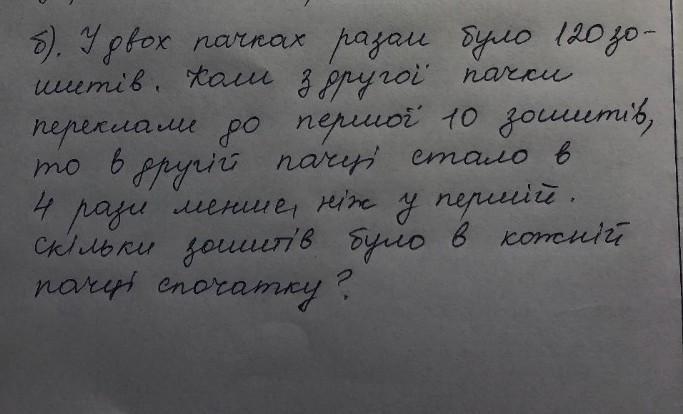 б). У двох пачках разом було 120 зо-
шитів. Коли з другої пачки
переклали до першої 10 зошитів,
то в другій пачці стало в
4 рази менше, ніж у першій.
Скільки зошитів було в кожній
пачці спочатку?